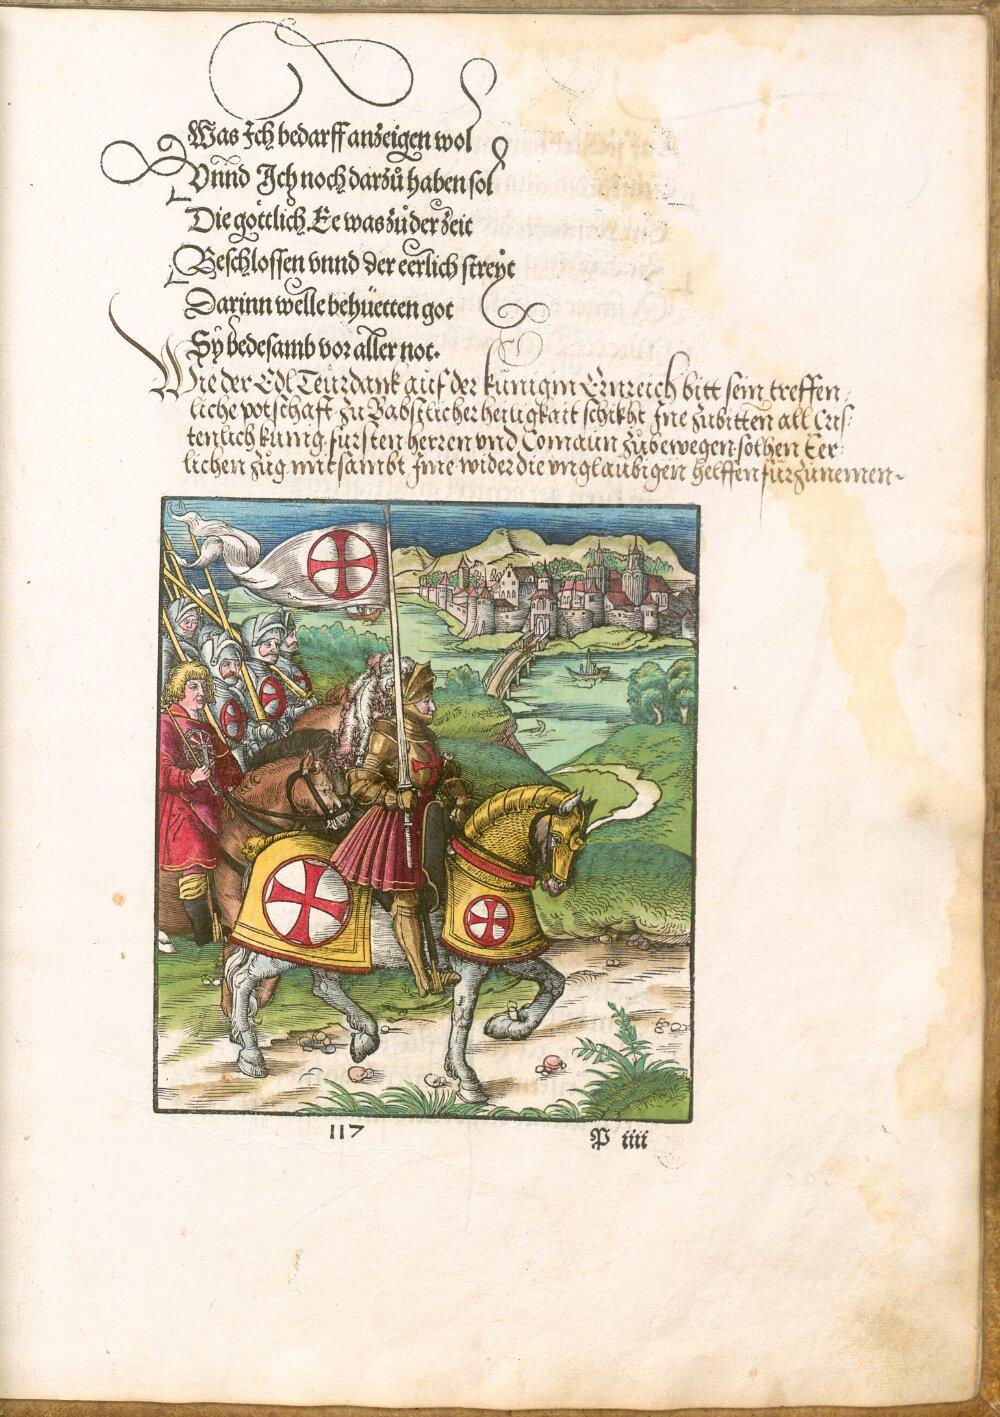 Was Ich bedarff anzeigen wol
Vnnd Ich noch darzů haben sol
Die götlich Ee was zů der zeit
Beschlossen vnnd der eerlich streyt
Darinn welle behüetten got
Sy bedesamb vor aller not.
Wie der Edl Teurdank auf der künigin Ernreich bitt sein treffen-
liche potschaft zu Babstlicher heiligkait schikht Ine zubitten all Cris-
tenlich kunig fürsten herren vnd Comaun zůbewegen sölhen Eer-
lichen zůg mitsambt Ime wider die vnglaubigen helffen fürzunemen-
117
P iiii